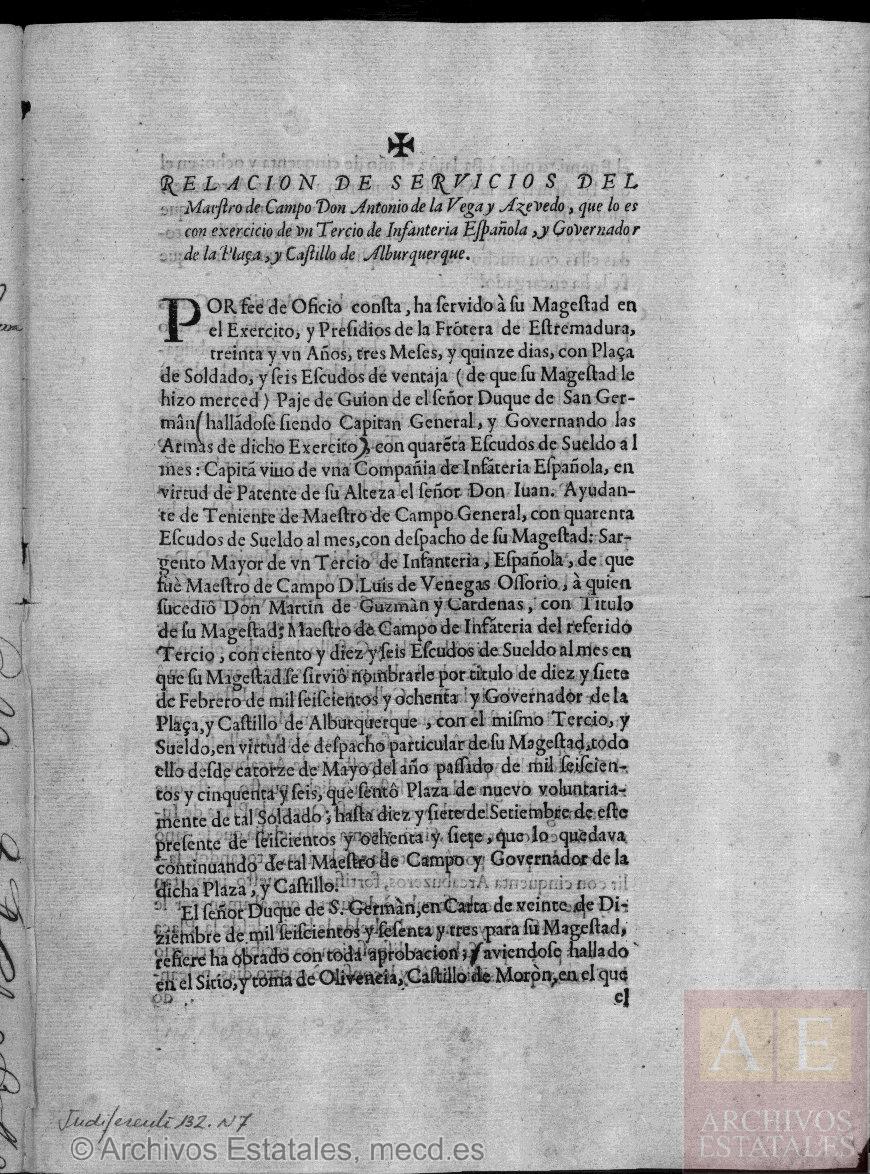 ✠
RELACION DE SERVICIOS DEL
Maestro de Campo Don Antonio de la Vega y Azevedo, que lo es
con exercicio de vn Tercio de Infanteria Española, y Governador
de la Plaça, y Castillo de Alburquerque.
POR fee de Oficio consta, ha servido à su Magestad en
el Exercito, y Presidios de la Frõtera de Estremadura,
treinta y vn Años, tres Meses, y quinze dias, con Plaça
de Soldado, y seis Escudos de ventaja (de que su Magestad le
hizo merced) Paje de Guion de el señor Duque de San Ger-
mân (hallãdose siendo Capitan General, y Governando las
Armas de dicho Exercito), con quarẽta Escudos de Sueldo al
mes: Capitã vivo de vna Compañia de Infãteria Española, en
virtud de Patente de su Alteza el señor Don Iuan. Ayudan-
te de Teniente de Maestro de Campo General, con quarenta
Escudos de Sueldo al mes, con despacho de su Magestad: Sar-
gento Mayor de vn Tercio de Infanteria, Española, de que
fuè Maestro de Campo D. Luis de Venegas Ossorio, à quien
sucediô Don Martin de Guzmàn y Cardenas, con Titulo
de su Magestad; Maestro de Campo de Infãteria del referido
Tercio, con ciento y diez y seis Escudos de Sueldo al mes en
que su Magestad se sirviô nombrarle por titulo de diez y siete
de Febrero de mil seiscientos y ochenta y Governador de la
Plaça, y Castillo de Alburquerque, con el mismo Tercio, y
Sueldo, en virtud de despacho particular de su Magestad, todo
ello desde catorze de Mayo del año passado de mil seiscien-
tos y cinquenta y seis, que sentô Plaza de nuevo voluntaria-
mente de tal Soldado; hasta diez y siete de Setiembre de este
presente de seiscientos y ochenta y siete, que lo quedava
continuando de tal Maestro de Campo y Governador de la
dicha Plaza, y Castillo.
El señor Duque de S. Germàn, en Carta de veinte de Di-
ziembre de mil seiscientos y sesenta y tres para su Magestad,
refiere ha obrado con toda aprobacion; y aviendose hallado
en el Sitio, y toma de Olivencia, Castillo de Moròn, en el que
el
Indiferente 132. N7
© Archivos Estatales, mecd.es
AE
ARCHIVOS
ESTATALES